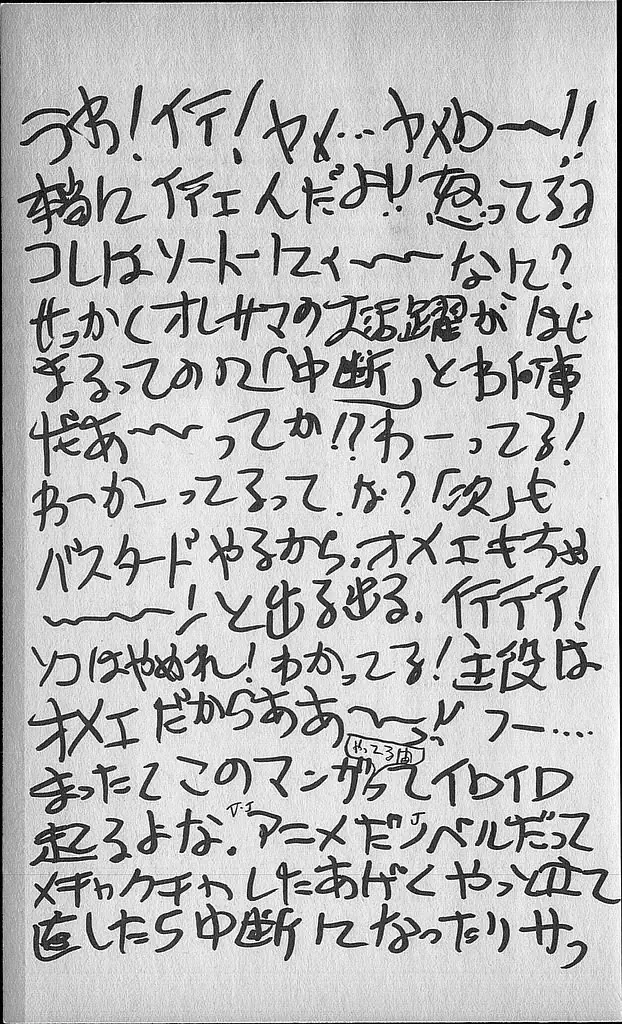 うわ!イテ!ヤメ…ヤメロ〜!!
本当にイテェんだよ!!怒ってるね
コレはソートーにィ〜〜なに?
せっかくオレサマの大活躍がはじ
まるってのに「中断」とわ何事
だあ〜〜ってか!?わーってる!
わーかーってるって、な?「次」も
バスタードやるから、オメエもちゃ
〜〜〜んと出る出る、イテテテ!
ソコはやめれ!わかってる!主役は
オメエだからああ〜〜!!フー‥‥
まったくこのマンガ
やってる由
ってイロイロ
起るよな。アニメだノベルだって
V・J
J
メチャクチャしたあげくやっと立て
直したら中断になったりサっ